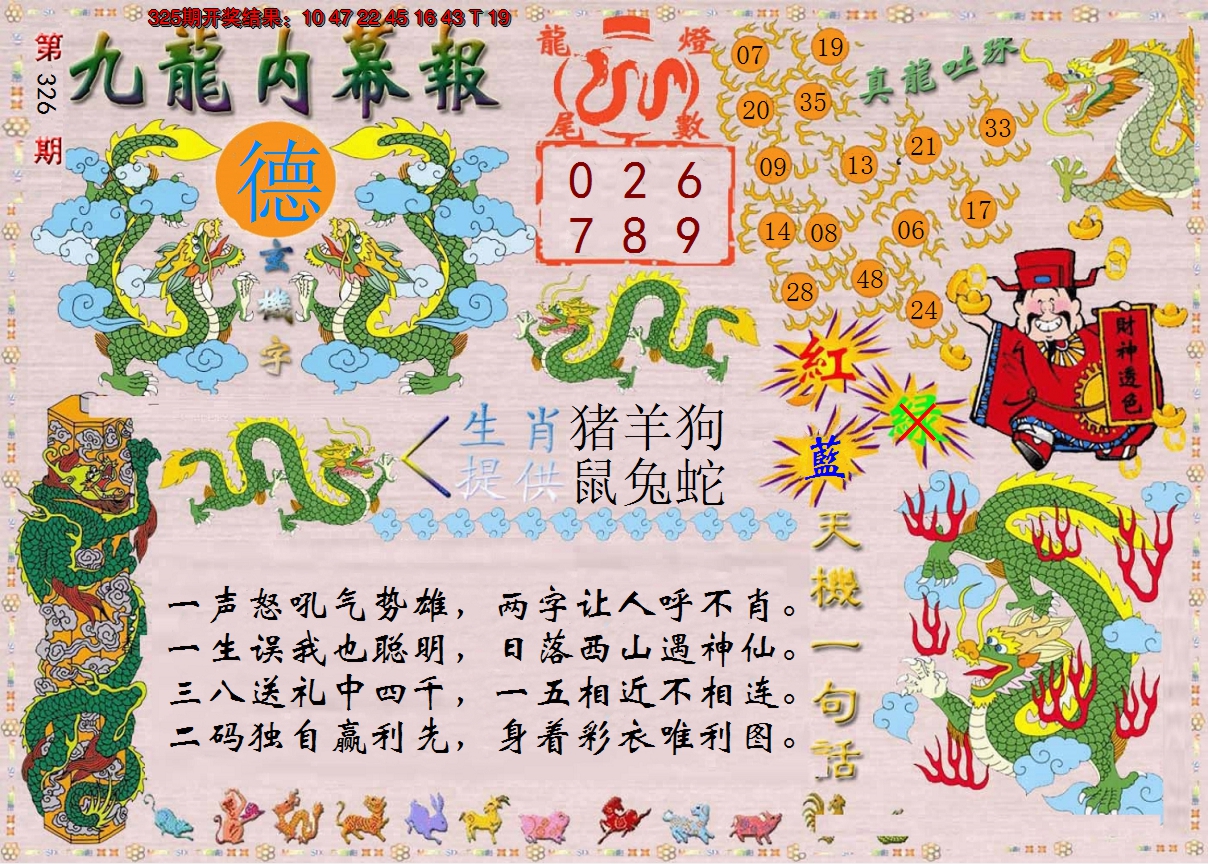 325期开奖结果：10 47 22 45 16 43 T 19
第326期
九龍内幕報
德
玄機字
龍燈
尾數
0 2 6
7 8 9
真龍吐珠
07 19
20 35
09 13 21 33
14 08 06 17
28 48 24
財神透色
紅
绿
藍
生肖 猪羊狗
提供 鼠兔蛇
天機一句話
一声怒吼气势雄，两字让人呼不肖。
一生误我也聪明，日落西山遇神仙。
三八送礼中四千，一五相近不相连。
二码独自赢利先，身着彩衣唯利图。